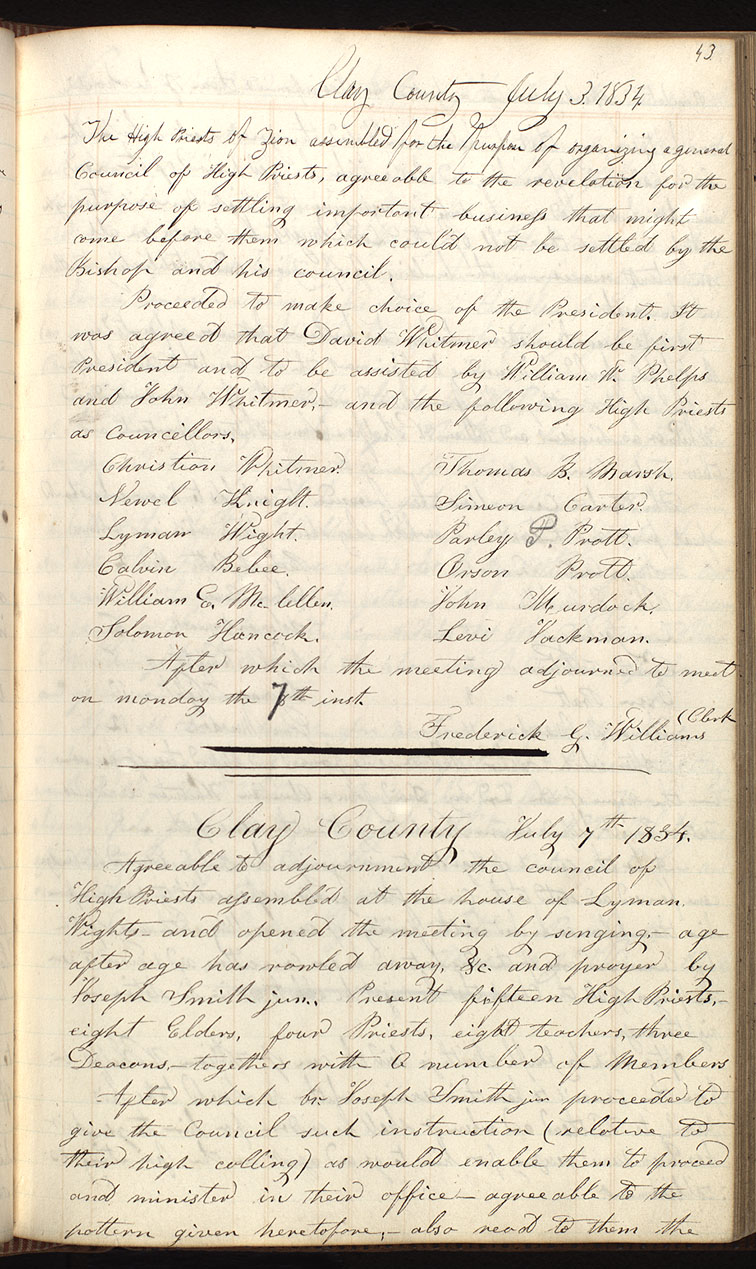 43
Clay County July 3. 1834
The High Priests of Zion assembled for the Purpose of organizing a general
Council of High Priests, agreeable to the revelation for the
purpose of settling important business that might
come before them which could not be settled by the
Bishop and his council.
Proceeded to make choice of the President. It
was agreed that David Whitmer should be first
President and to be assisted by William W. Phelps
and John Whitmer,- and the following High Priests
as councellors.
Christian Whitmer. Thomas B. Marsh.
Newel Knight. Simeon Carter.
Lyman Wight. Parley P. Pratt.
Calvin Bebee. Orson Pratt.
William E. Mc.lellen. John Murdock.
Solomon Hancock. Levi Jackman.
After which the meeting adjourned to meet
on monday the 7th inst.
Frederick G. Williams (Clerk
Clay County July 7th 1834.
Agreeable to adjournment the council of
High Priests assembled at the house of Lyman
Wights - and opened the meeting by singing,- age
after age has rowled away, &c. and prayer by
Joseph Smith jun. Present fifteen High Priests,-
eight Elders, four Priests, eight teachers, three
Deacons,- togethers with a number of Members
After which br. Joseph Smith jun proceeded to
give the Council such instruction (relative to
their high calling) as would enable them to proceed
and minister in their office - agreeable to the
pattern given heretofore,- also read to them the